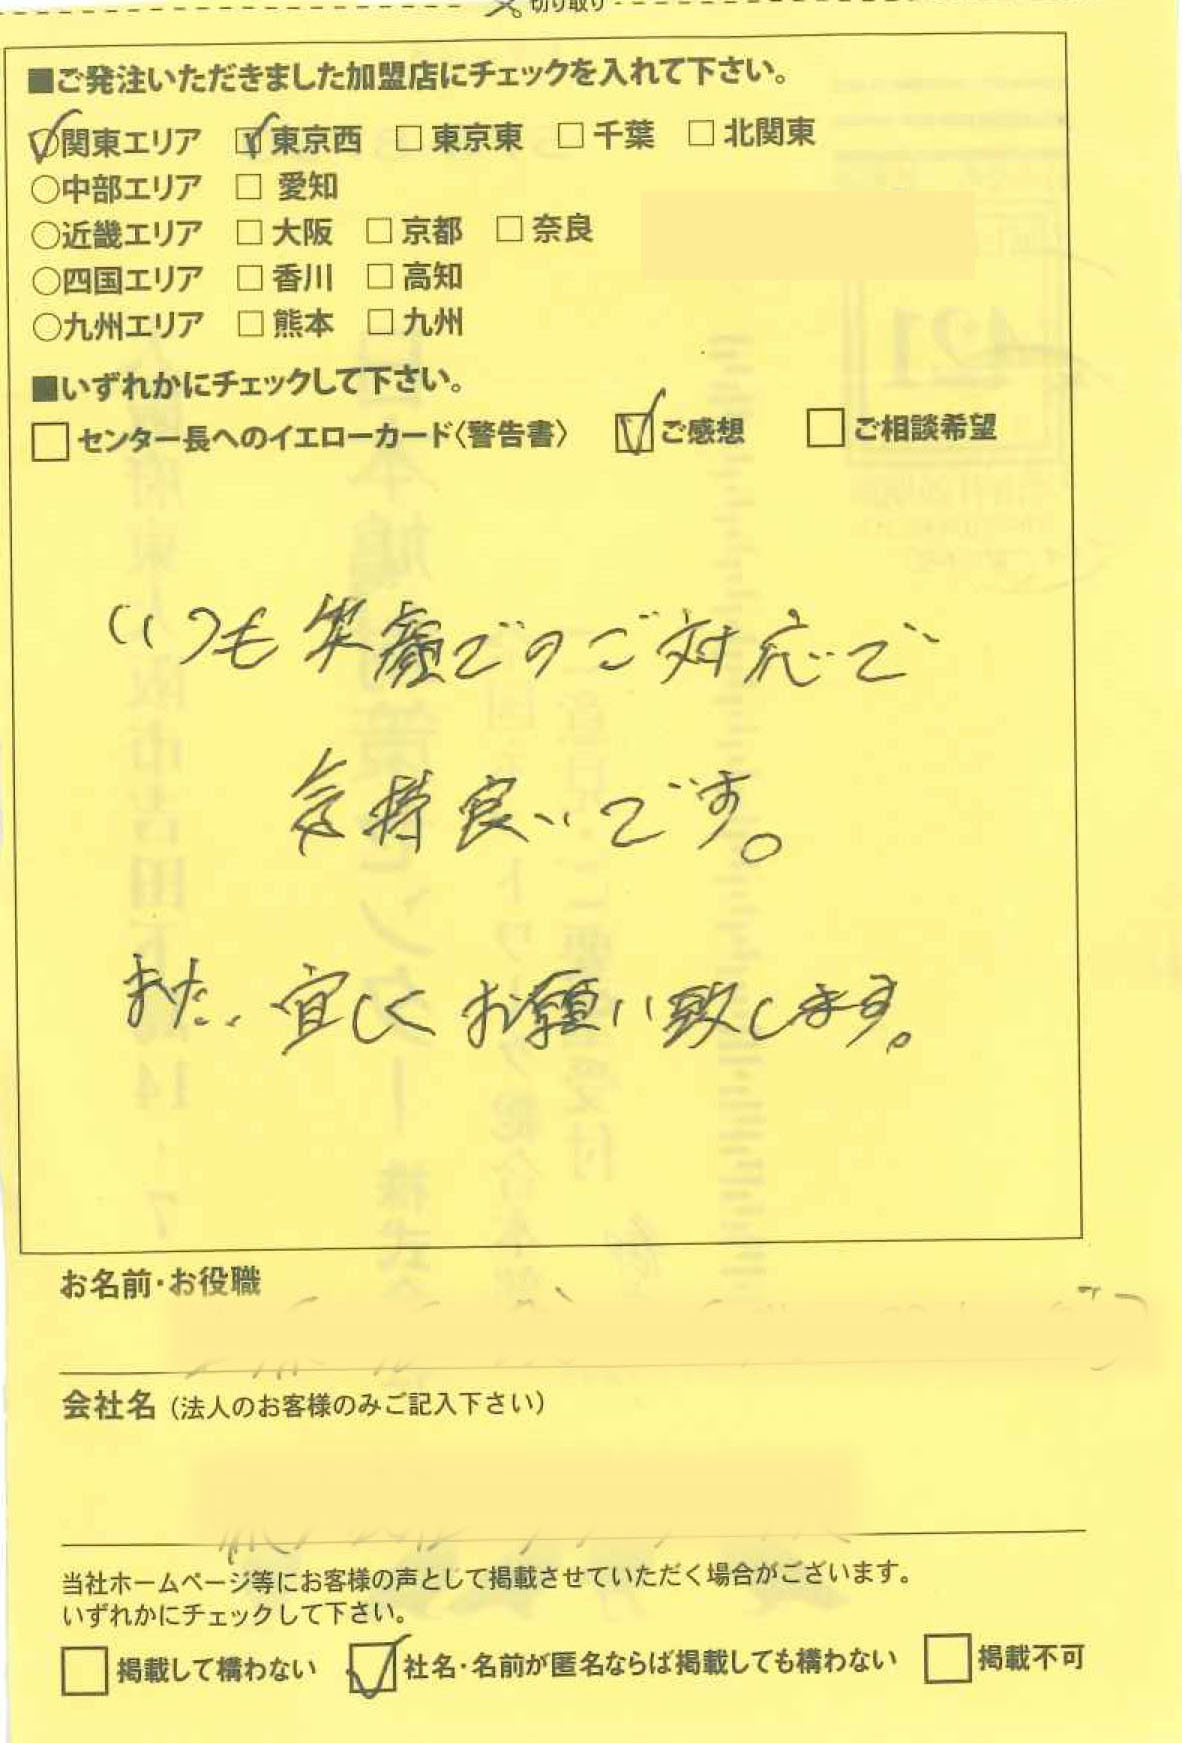 切り取り
■ご発注いただきました加盟店にチェックを入れて下さい。
○関東エリア □東京西 □東京東 □千葉 □北関東
○中部エリア □愛知
○近畿エリア □大阪 □京都 □奈良
○四国エリア □香川 □高知
○九州エリア □熊本 □九州
■いずれかにチェックして下さい。
□センター長へのイエローカード〈警告書〉 □ご感想 □ご相談希望
いつも笑顔でのご対応で
気持良いです。
また、宜しくお願い致します。
お名前・お役職
会社名（法人のお客様のみご記入下さい）
当社ホームページ等にお客様の声として掲載させていただく場合がございます。
いずれかにチェックして下さい。
□掲載して構わない □社名・名前が匿名ならば掲載しても構わない □掲載不可